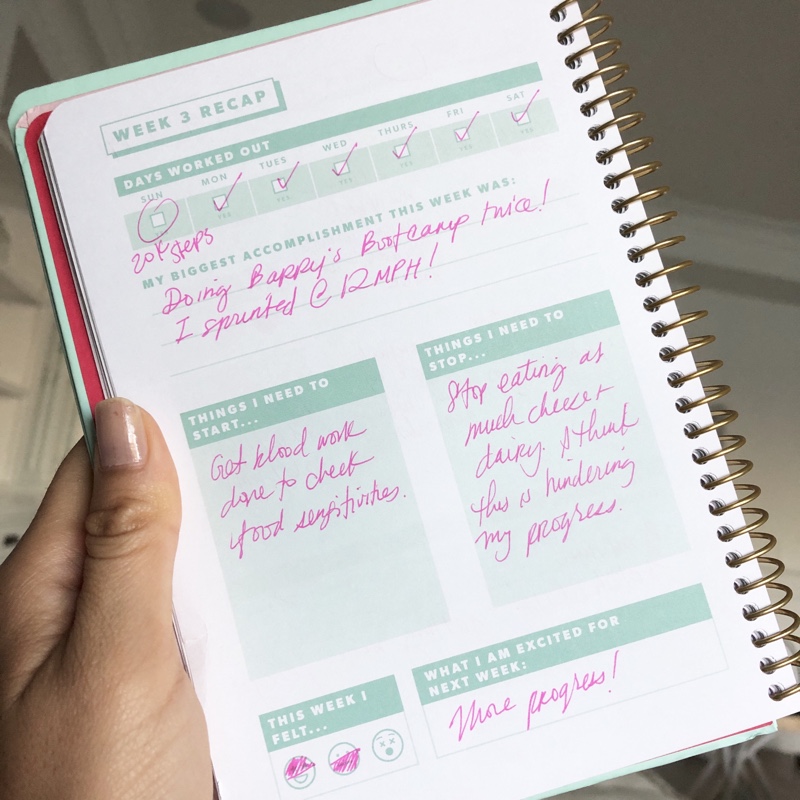 WEEK 3 RECAP
DAYS WORKED OUT
SUN MON TUES WED THURS FRI SAT
YES YES YES YES YES YES
20K steps
MY BIGGEST ACCOMPLISHMENT THIS WEEK WAS:
Doing Barry's Bootcamp twice!
I sprinted @ 12MPH!
THINGS I NEED TO
START...
Get blood work
done to check
food sensitivities.
THINGS I NEED TO
STOP...
Stop eating as
much cheese +
dairy. I think
this is hindering
my progress.
THIS WEEK I
FELT...
WHAT I AM EXCITED FOR
NEXT WEEK:
More progress!